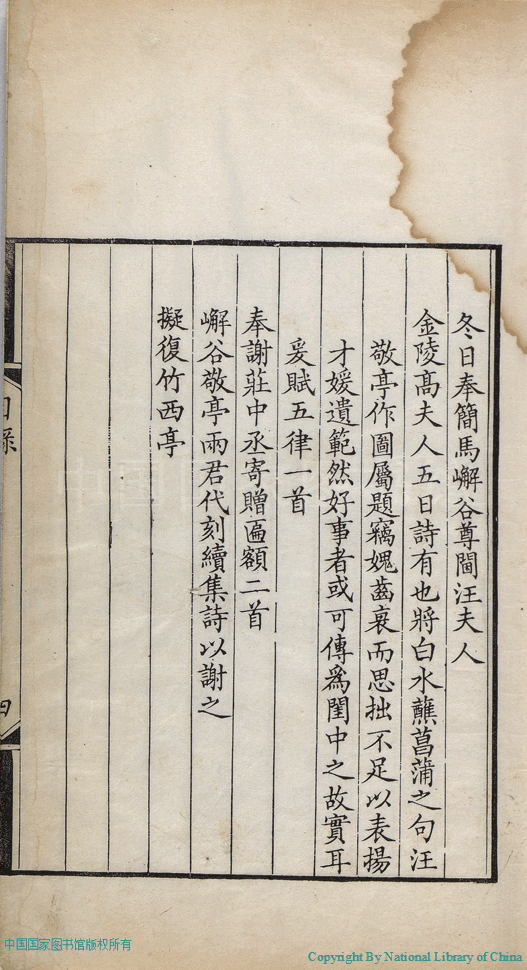 冬日奉簡馬嶰谷尊閫汪夫人
金陵髙夫人五日詩有也將白水蘸菖蒲之句汪
敬亭作圖屬題竊媿齒衰而思拙不足以表揚
才媛遺範然好事者或可傳爲閨中之故實耳
爰賦五律一首
奉謝莊中丞寄贈匾額二首
嶰谷敬亭兩君代刻續集詩以謝之
擬復竹西亭
目錄
四
中国国家图书馆版权所有
Copyright By National Library of China